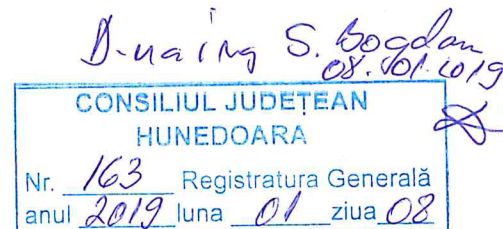 D-na ing S. Bogdan
08.01.2019
CONSILIUL JUDEȚEAN
HUNEDOARA
Nr. 163 Registratura Generală
anul 2019 luna 01 ziua 08